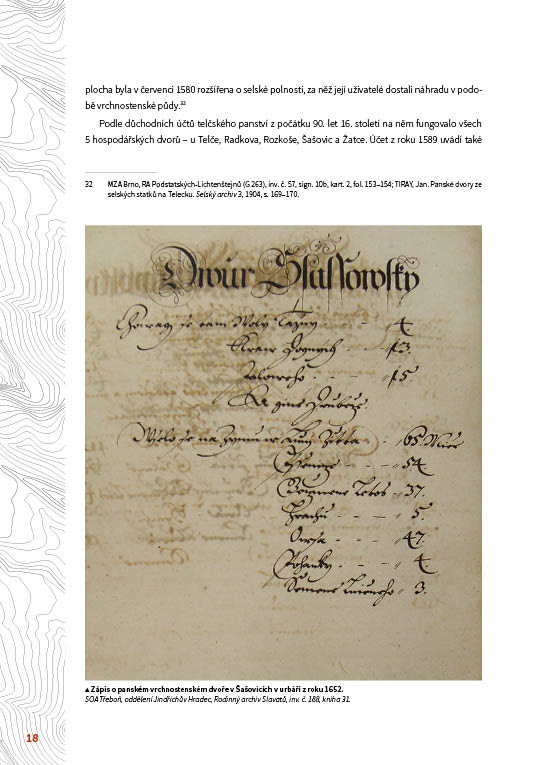 plocha byla v červenci 1580 rozšířena o selské polnosti, za něž její uživatelé dostali náhradu v podo-
bě vrchnostenské půdy.³²
Podle důchodních účtů telčského panství z počátku 90. let 16. století na něm fungovalo všech
5 hospodářských dvorů – u Telče, Radkova, Rozkoše, Šašovic a Žatce. Účet z roku 1589 uvádí také
32 MZA Brno, RA Podstatských-Lichtenštejnů (G 263), inv. č. 57, sign. 10b, kart. 2, fol. 153–154; TIRAY, Jan. Panské dvory ze
selských statků na Telecku. Selský archiv 3, 1904, s. 169–170.
Dwur
Chowagj se tam Woly Tažny - - 4.
Kraw Dognych - - 13.
Jaloweho - - 15
Ka gine Drubeže.
se na Zymu Žitta - 65 Mier
Pssenyze - - - 54
Geczmene Letos 37.
Hrachu - - - 5.
Owsa - - - 47.
Pohanky - - - 4.
Semene 3.
▲ Zápis o panském vrchnostenském dvoře v Šašovicích v urbáři z roku 1652.
SOA Třeboň, oddělení Jindřichův Hradec, Rodinný archiv Slavatů, inv. č. 188, kniha 31.
18